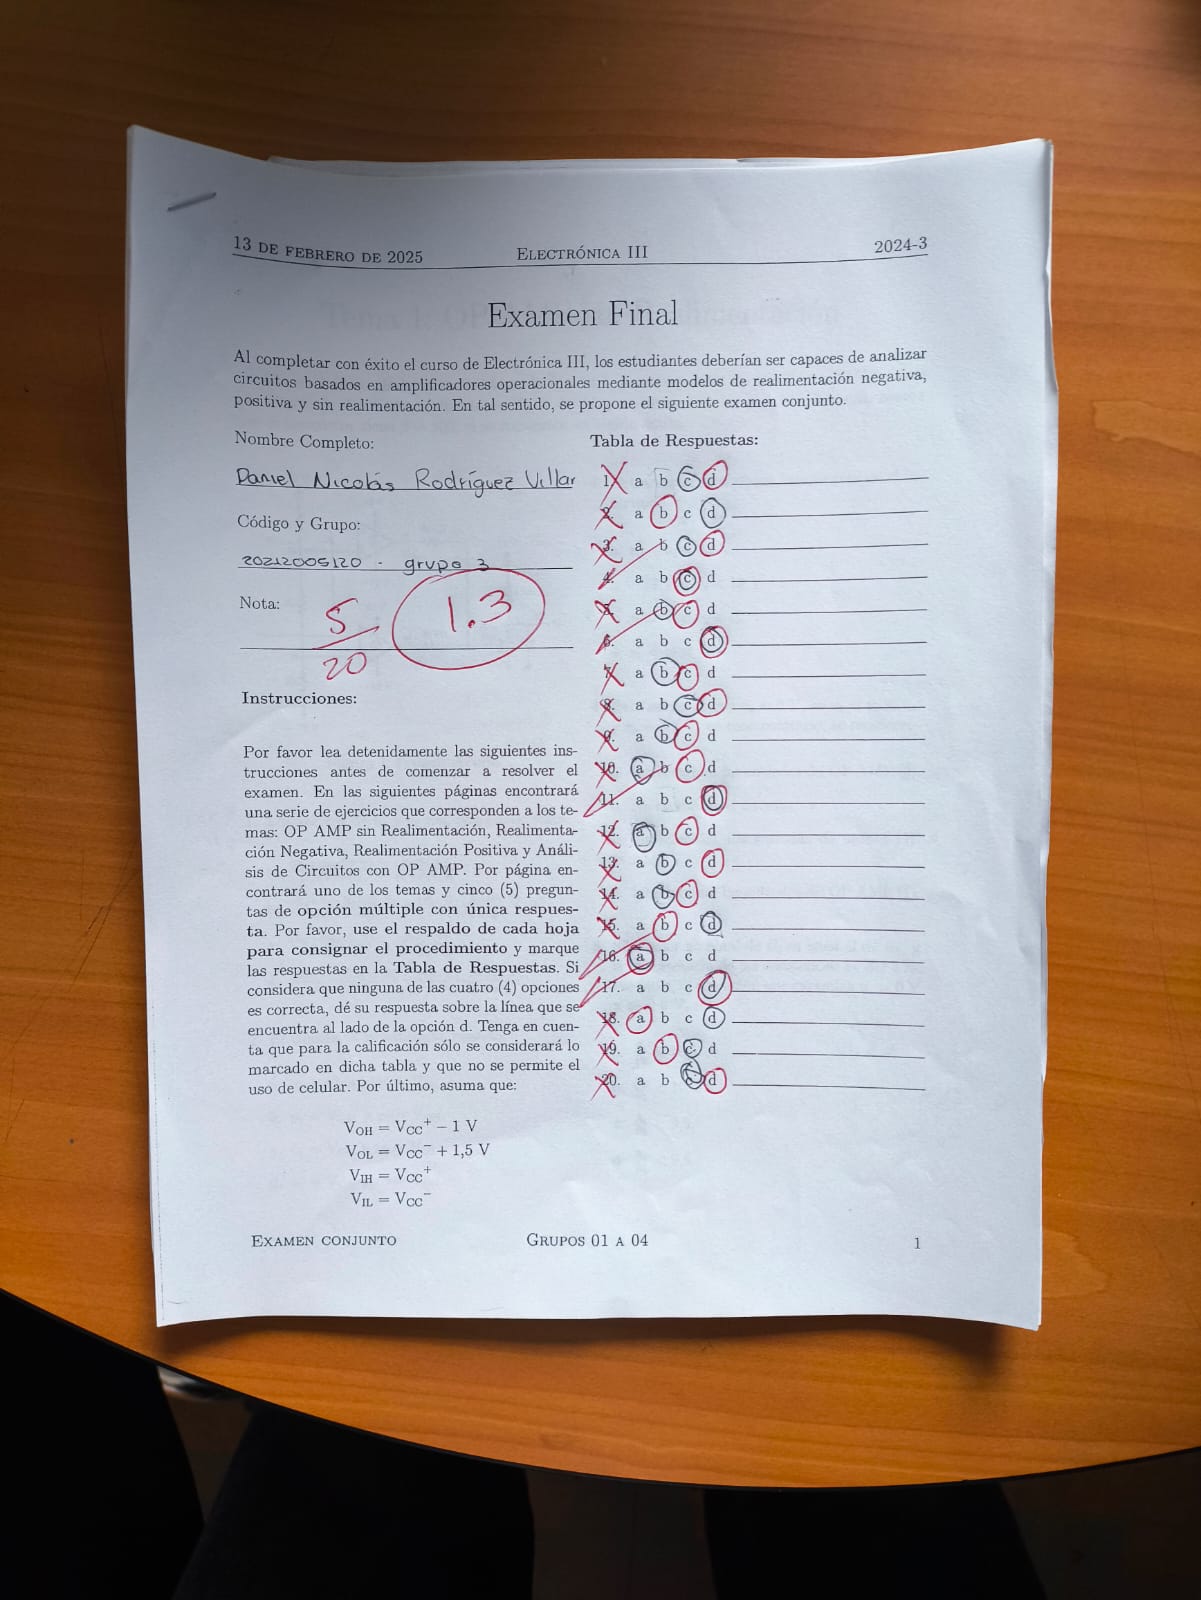 13 DE FEBRERO DE 2025 ELECTRÓNICA III 2024-3
Examen Final
Al completar con éxito el curso de Electrónica III, los estudiantes deberían ser capaces de analizar
circuitos basados en amplificadores operacionales mediante modelos de realimentación negativa,
positiva y sin realimentación. En tal sentido, se propone el siguiente examen conjunto.
Nombre Completo:
Daniel Nicolás Rodríguez Villar
Código y Grupo:
20212005120 - grupo 3
Nota:
5/20 1.3
Instrucciones:
Por favor lea detenidamente las siguientes ins-
trucciones antes de comenzar a resolver el
examen. En las siguientes páginas encontrará
una serie de ejercicios que corresponden a los te-
mas: OP AMP sin Realimentación, Realimenta-
ción Negativa, Realimentación Positiva y Análi-
sis de Circuitos con OP AMP. Por página en-
contrará uno de los temas y cinco (5) pregun-
tas de opción múltiple con única respues-
ta. Por favor, use el respaldo de cada hoja
para consignar el procedimiento y marque
las respuestas en la Tabla de Respuestas. Si
considera que ninguna de las cuatro (4) opciones
es correcta, dé su respuesta sobre la línea que se
encuentra al lado de la opción d. Tenga en cuen-
ta que para la calificación sólo se considerará lo
marcado en dicha tabla y que no se permite el
uso de celular. Por último, asuma que:
VOH = VCC+ − 1 V
VOL = VCC− + 1,5 V
VIH = VCC+
VIL = VCC−
Tabla de Respuestas:
1. a b c d
2. a b c d
3. a b c d
4. a b c d
5. a b c d
6. a b c d
7. a b c d
8. a b c d
9. a b c d
10. a b c d
11. a b c d
12. a b c d
13. a b c d
14. a b c d
15. a b c d
16. a b c d
17. a b c d
18. a b c d
19. a b c d
20. a b c d
EXAMEN CONJUNTO GRUPOS 01 A 04 1